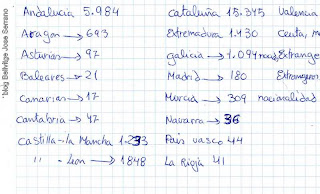 Andalucia 5.984 cataluña 15.345 Valencia
Aragon → 693 Extremadura 1.130 Ceuta, M
Asturias → 97 galicia → 1.094
Baleares → 21 Madrid → 180 Extranjeros
Canarias → 17 Murcia → 309 nacionalidad
cantabria → 47 Navarra → 36
castilla-la Mancha 1.233 Pais vasco 44
" " - Leon → 1848 La Rioja 41
"blog Bellvitge Jose Serrano